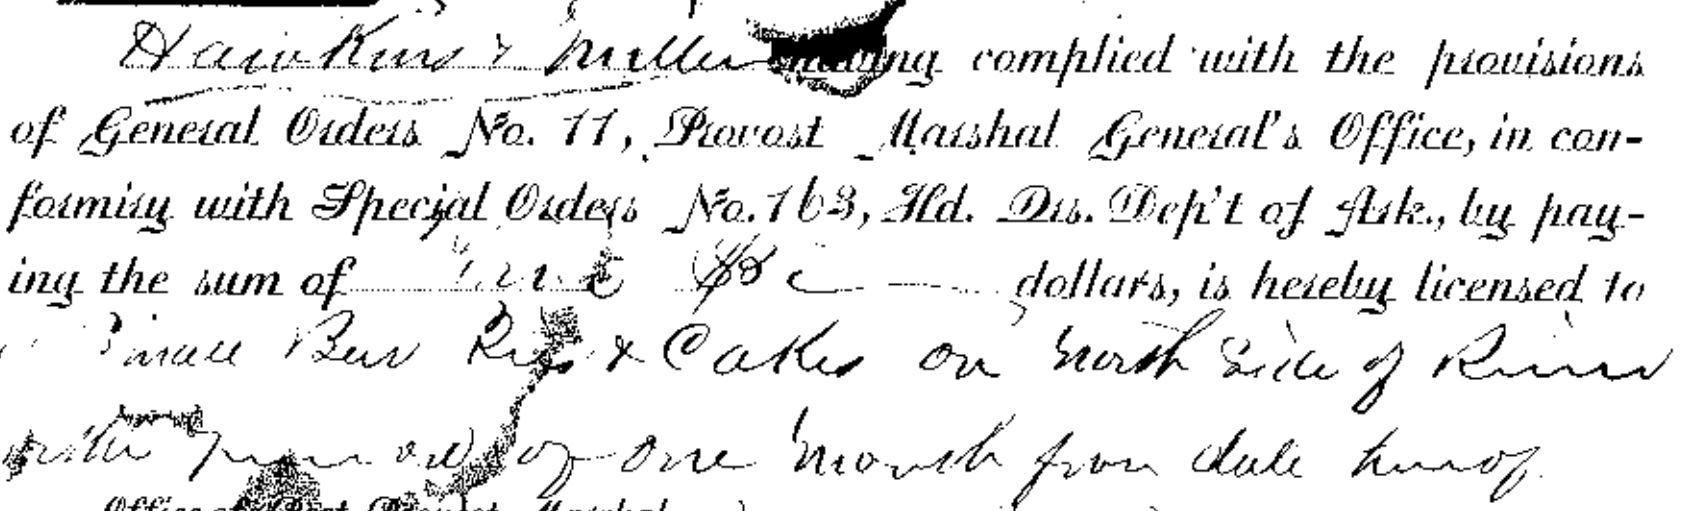 Hawkins & Miller having complied with the provisions
of General Orders No. 11, Provost Marshal General's Office, in con-
formity with Special Orders No. 163, Hd. Qrs. Dep't of Ark., by pay-
ing the sum of dollars, is hereby licensed to
Small Beer Pies & Cakes on North Side of River
period of one Month from date hereof
Office of Post Provost Marshal